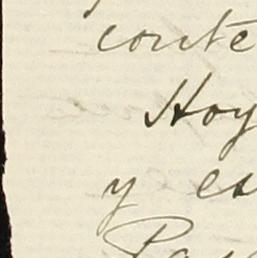 conte
Hoy
y es
Pas